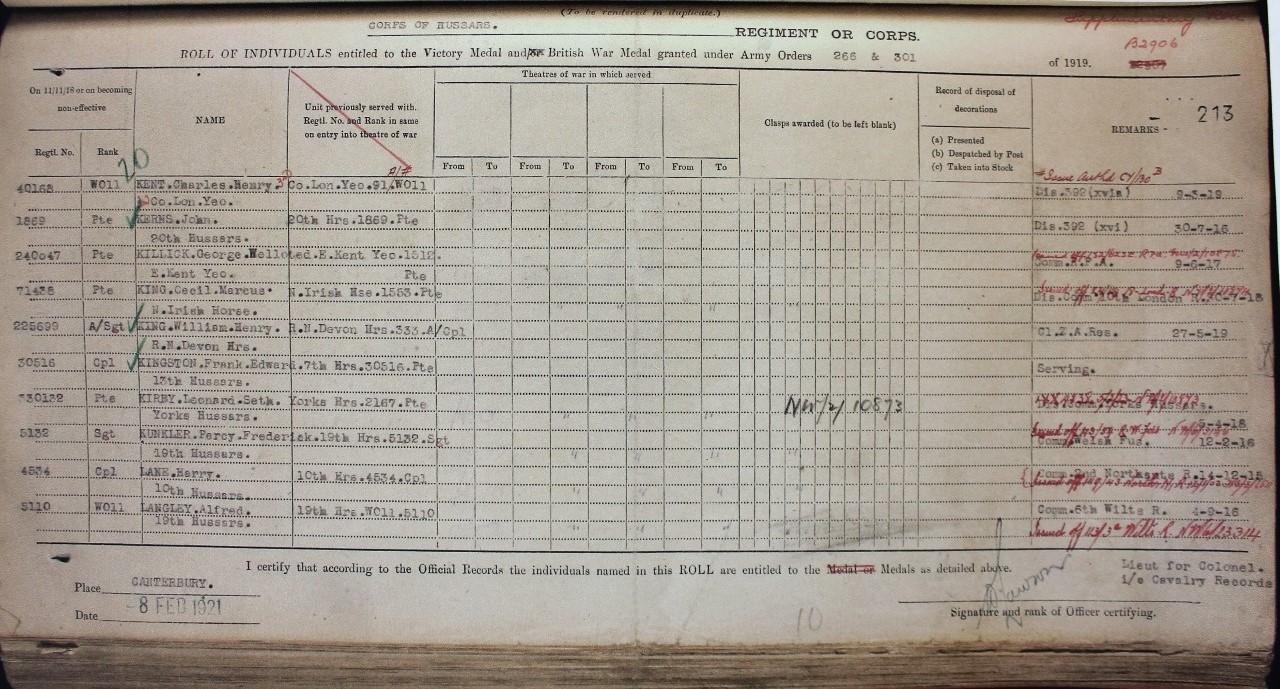 (To be rendered in duplicate.)
CORPS OF HUSSARS. REGIMENT OR CORPS.
Supplementary Roll
B2906
ROLL OF INDIVIDUALS entitled to the Victory Medal and/or British War Medal granted under Army Orders 266 & 301 of 1919.
213
On 11/11/18 or on becoming non-effective
Regtl. No. Rank
NAME
Unit previously served with. Regtl. No. and Rank in same on entry into theatre of war
Theatres of war in which served
From To From To From To From To
Clasps awarded (to be left blank)
Record of disposal of decorations
(a) Presented
(b) Despatched by Post
(c) Taken into Stock
REMARKS
20
40168 WO11 KENT.Charles.Henry. 3rd Co.Lon.Yeo.91.WO11 Dis.392 (xvia) 9-3-19
Co.Lon.Yeo.
1869 Pte KERNS.John. 20th Hrs.1869.Pte Dis.392 (xvi) 30-7-16
20th Hussars.
240047 Pte KILLICK.George.Welloted.E.Kent Yeo.1512. Comm.R.F.A. 9-6-17
E.Kent Yeo. Pte
71438 Pte KING.Cecil.Marcus. N.Irish Hse.1553.Pte
N.Irish Horse.
225699 A/Sgt KING.William.Henry. R.N.Devon Hrs.333.A/Cpl Cl.Z.A.Res. 27-5-19
R.N.Devon Hrs.
30516 Cpl KINGSTON.Frank.Edward.7th Hrs.30516.Pte Serving.
13th Hussars.
330132 Pte KIRBY.Leonard.Seth. Yorks Hrs.2167.Pte NW/2/10873
Yorks Hussars.
5132 Sgt KUNKLER.Percy.Frederick.19th Hrs.5132.Sgt Comm.Welsh Fus. 12-2-16
19th Hussars.
4534 Cpl LANE.Harry. 10th Hrs.4534.Cpl Comm.2nd Northants R.14-12-15
10th Hussars.
5110 WO11 LANGLEY.Alfred. 19th Hrs.WO11.5110 Comm.6th Wilts R. 4-9-16
19th Hussars.
I certify that according to the Official Records the individuals named in this ROLL are entitled to the Medal or Medals as detailed above.
Place CANTERBURY.
Date -8 FEB 1921
10
Lieut for Colonel.
i/c Cavalry Records
Signature and rank of Officer certifying.